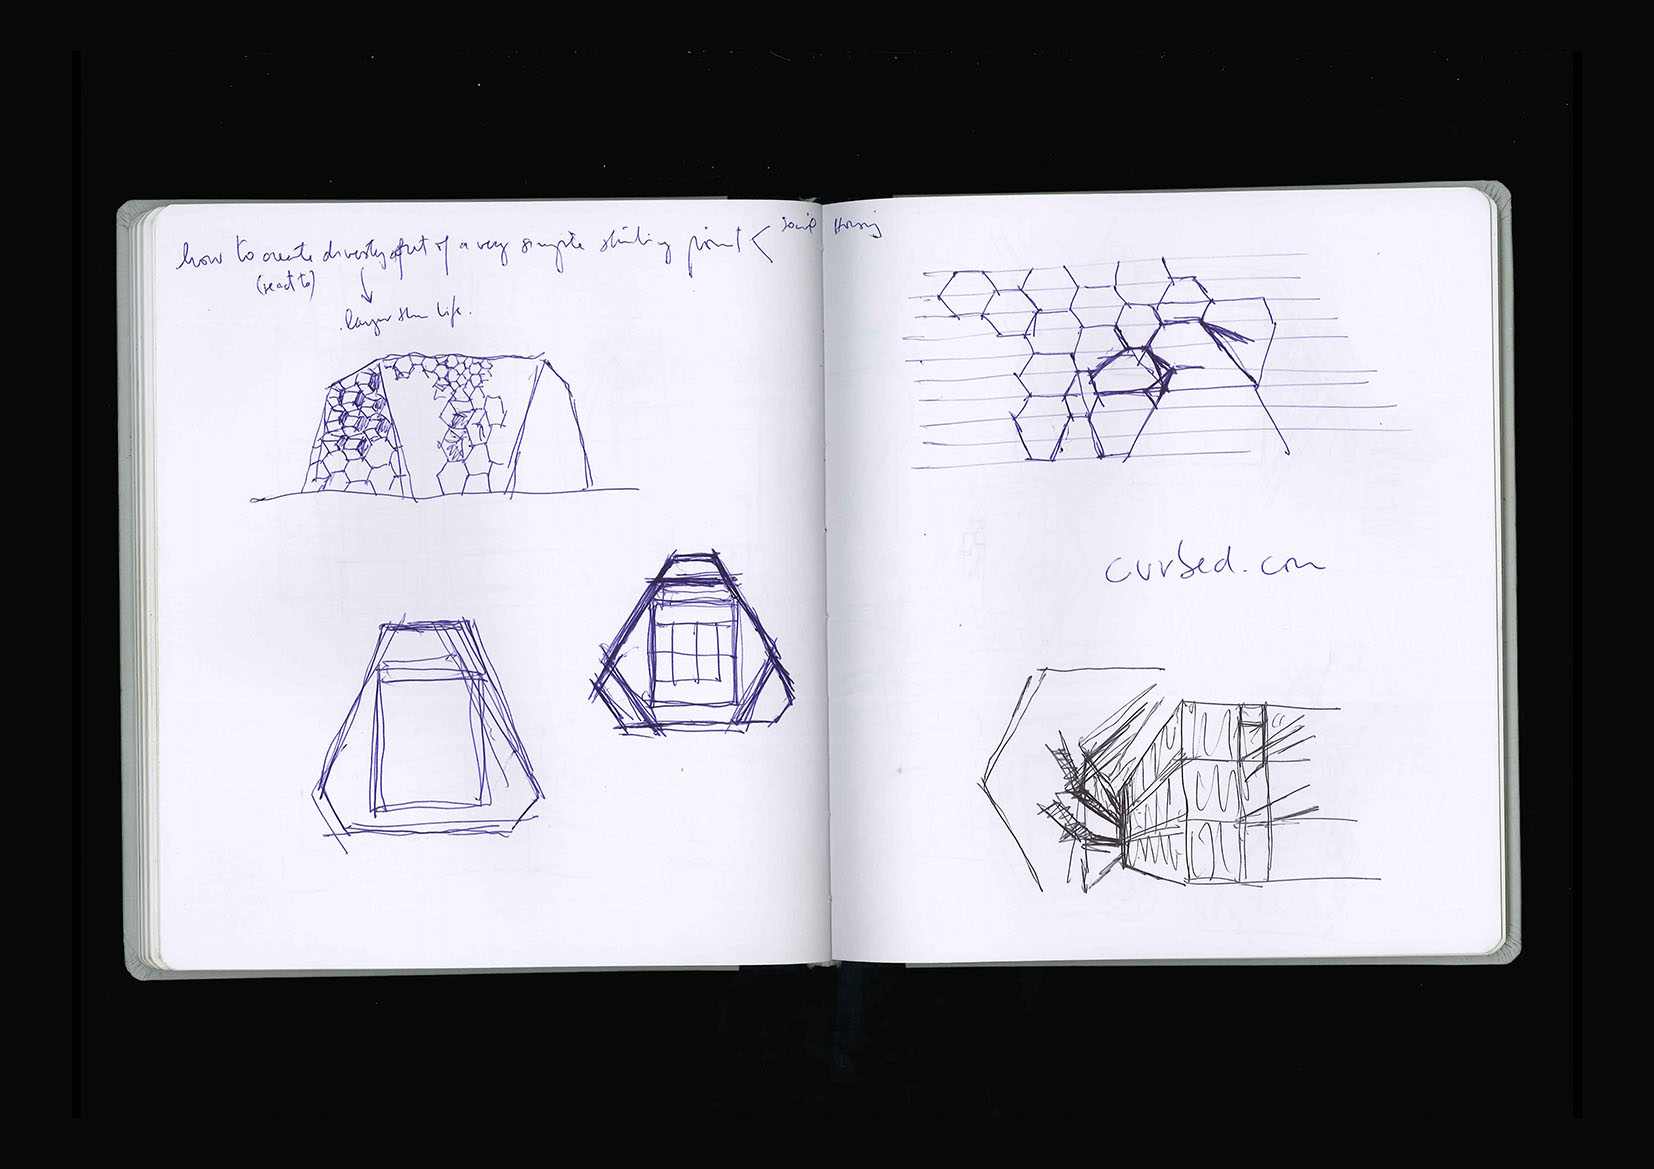 how to create diversity out of a very simple starting point < Social Housing
(react to)
larger than life.
curbed.com